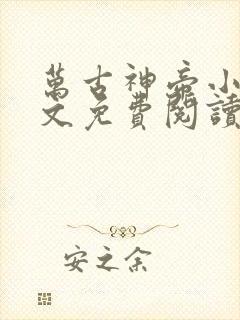 萬古神帝小
文免費閱讀
安之余